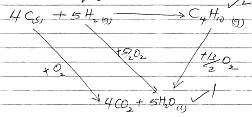 4C(s) + 5H₂(g) ⟶ C₄H₁₀(g) ✓
+O₂ +5/2 O₂ +13/2 O₂
4CO₂ + 5H₂O(l) ✓ 1